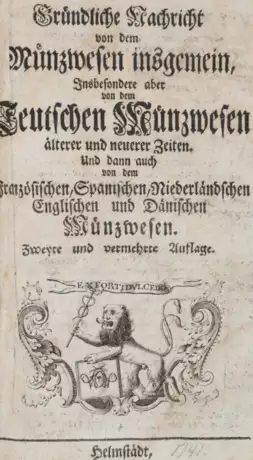 Gründliche Nachricht
von dem
Münzwesen insgemein,
Insbesondere aber
von dem
Teutschen Münzwesen
älterer und neuerer Zeiten.
Und dann auch
von dem
Französischen, Spanischen, Niederländschen
Englischen und Dänischen
Münzwesen.
Zweyte und vermehrte Auflage.
EX FORTI DULCEDO
Helmstädt,
1741.